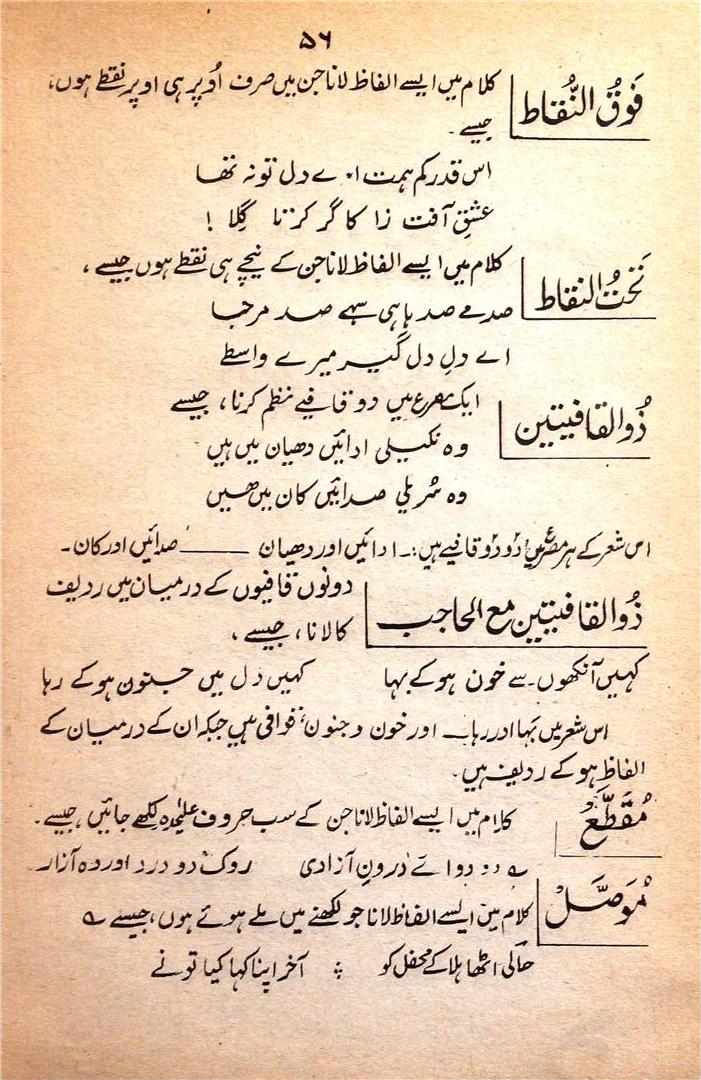 ۵۶
فَوقُ النُّقاط
کلام میں ایسے الفاظ لانا جن میں صرف اُوپر ہی اوپر نقطے ہوں،
جیسے۔
اس قدر کم ہمت اے دل تو نہ تھا
عشقِ آفت زا کا گر کرتا گِلا !
تَحتُ النقاط
کلام میں ایسے الفاظ لانا جن کے نیچے ہی نقطے ہوں جیسے،
صدمے صدہا ہی سہے صد مرحبا
اے دلِ دل گیر میرے واسطے
ذُوالقافیتین
ایک مصرع میں دو قافیے نظم کرنا، جیسے
وہ نکیلی ادائیں دھیان میں ہیں
وہ سُریلی صدائیں کان میں ھیں
اس شعر کے ہر مصرع میں دُو دُو قافیے ہیں:۔ ادائیں اور دھیان ——— صدائیں اور کان۔
ذُوالقافیتین مع الحاجب
دونوں قافیوں کے درمیان میں ردیف
کا لانا، جیسے،
کہیں آنکھوں سے خون ہو کے بہا کہیں دل میں جنون ہو کے رہا
اس شعر میں بَہا اور رہا۔ اور خون و جنون، قوافی ہیں جبکہ ان کے درمیان کے
الفاظ ہو کے ردیف ہیں۔
مُقَطَّعْ
کلام میں ایسے الفاظ لانا جن کے سب حروف علیٰحدہ لکھے جائیں، جیسے۔
؎ دو دوائے درونِ آزادی روک دو درد اور وہ آزار
مُوَصَّلْ
کلام میں ایسے الفاظ لانا جو لکھنے میں ملے ہوئے ہوں، جیسے ؎
حالی اٹھا ہلا کے محفل کو ؛ آخر اپنا کہا کیا تو نے